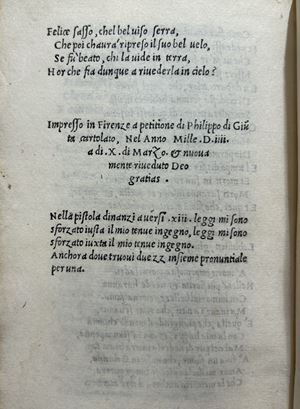 Felice sasso, chel bel uiso serra,
Che poi chaura ripreso il suo bel uelo,
Se fu beato, chi la uide in terra,
Hor che fia dunque a riuederla in cielo?
Impresso in Firenze a petitione di Philippo di Giũ
ta cartolaio, Nel Anno Mille .D.iiii.
a di .X. di Marzo. & nuoua
mente riueduto Deo
gratias.
Nella pistola dinanzi a uersi .xiii. leggi mi sono
sforzato iusta il mio tenue ingegno, leggi mi sono
sforzato iuxta il mio tenue ingegno.
Anchora doue truoui due zz insieme pronuntiale
per una.